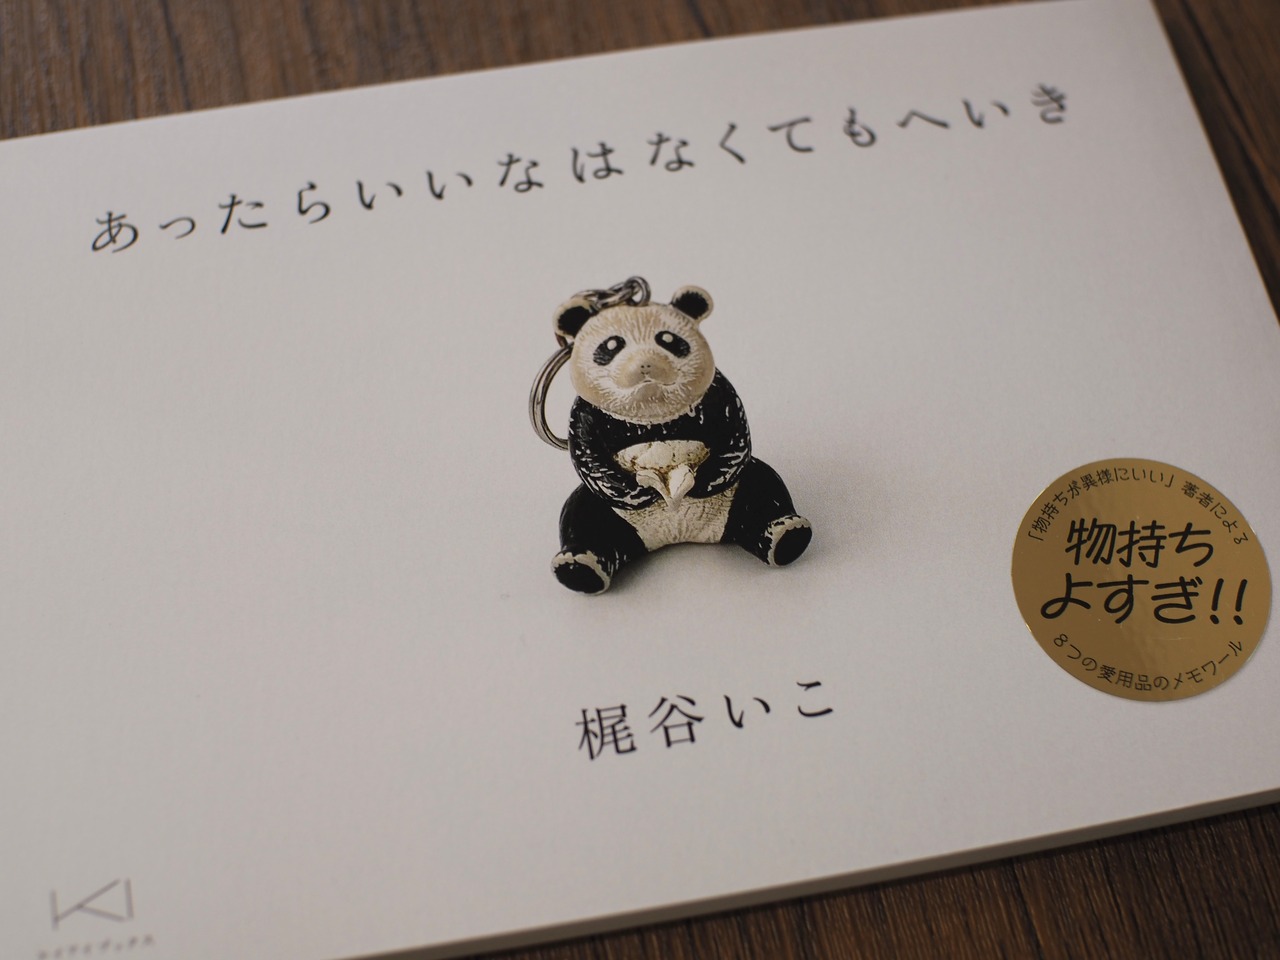 あったらいいなはなくてもへいき
「物持ちが異様にいい」著者による
物持ち
よすぎ!!
8つの愛用品のメモワール
梶谷いこ
KI